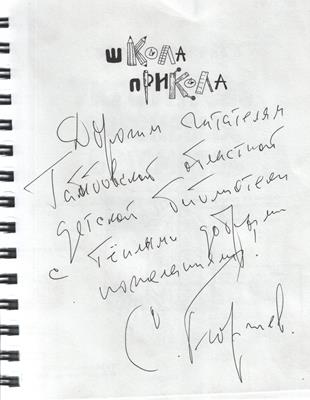 ШКОЛА
ПРИКОЛА
Дорогим читателям
Тамбовской областной
детской библиотеки
с тёплыми добрыми
пожеланиями.
С. Георгиев.